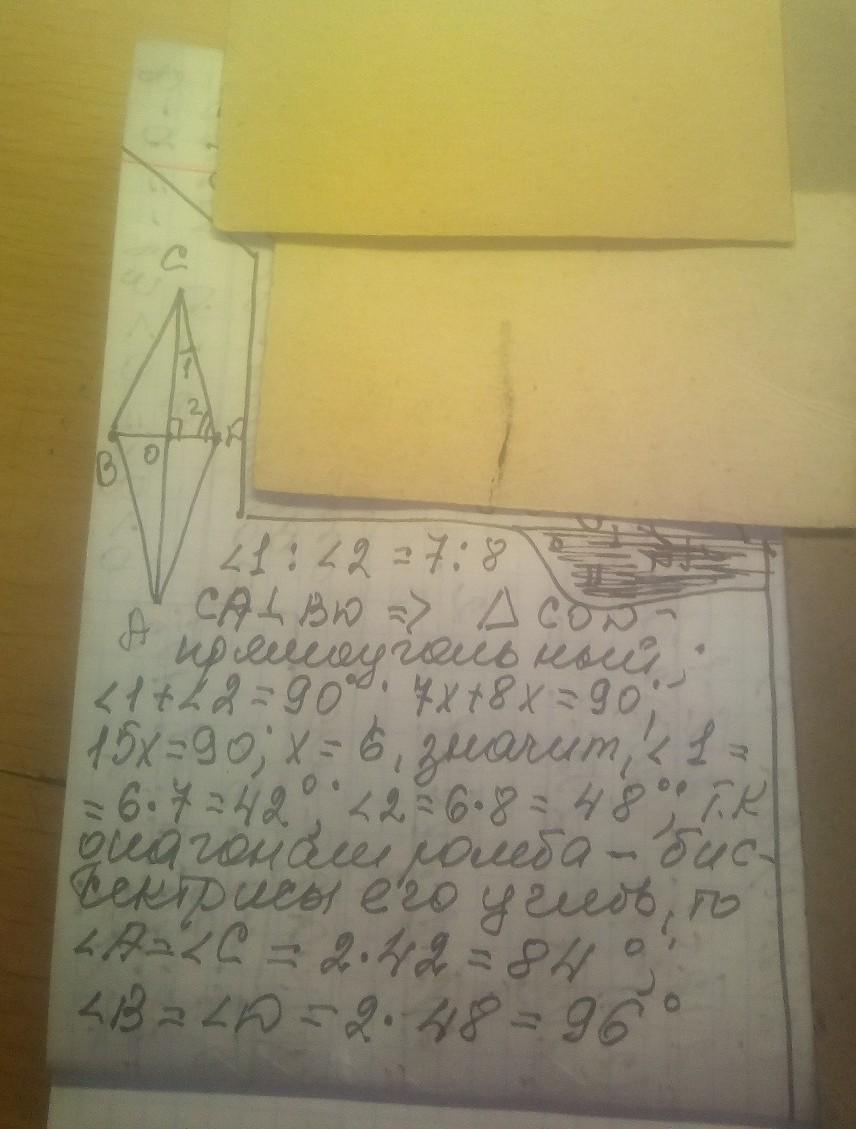 C
1
2
B
O
D
A
∠1 : ∠2 = 7 : 8
CA⊥BD => △ COD -
прямоугольный;
∠1+∠2=90°; 7x+8x=90;
15x=90; x=6, значит, ∠1 =
= 6·7=42°; ∠2=6·8= 48°; т.к
диагонали ромба - бис-
сектрисы его углов, то
∠A=∠C = 2·42=84°;
∠B=∠D=2·48=96°